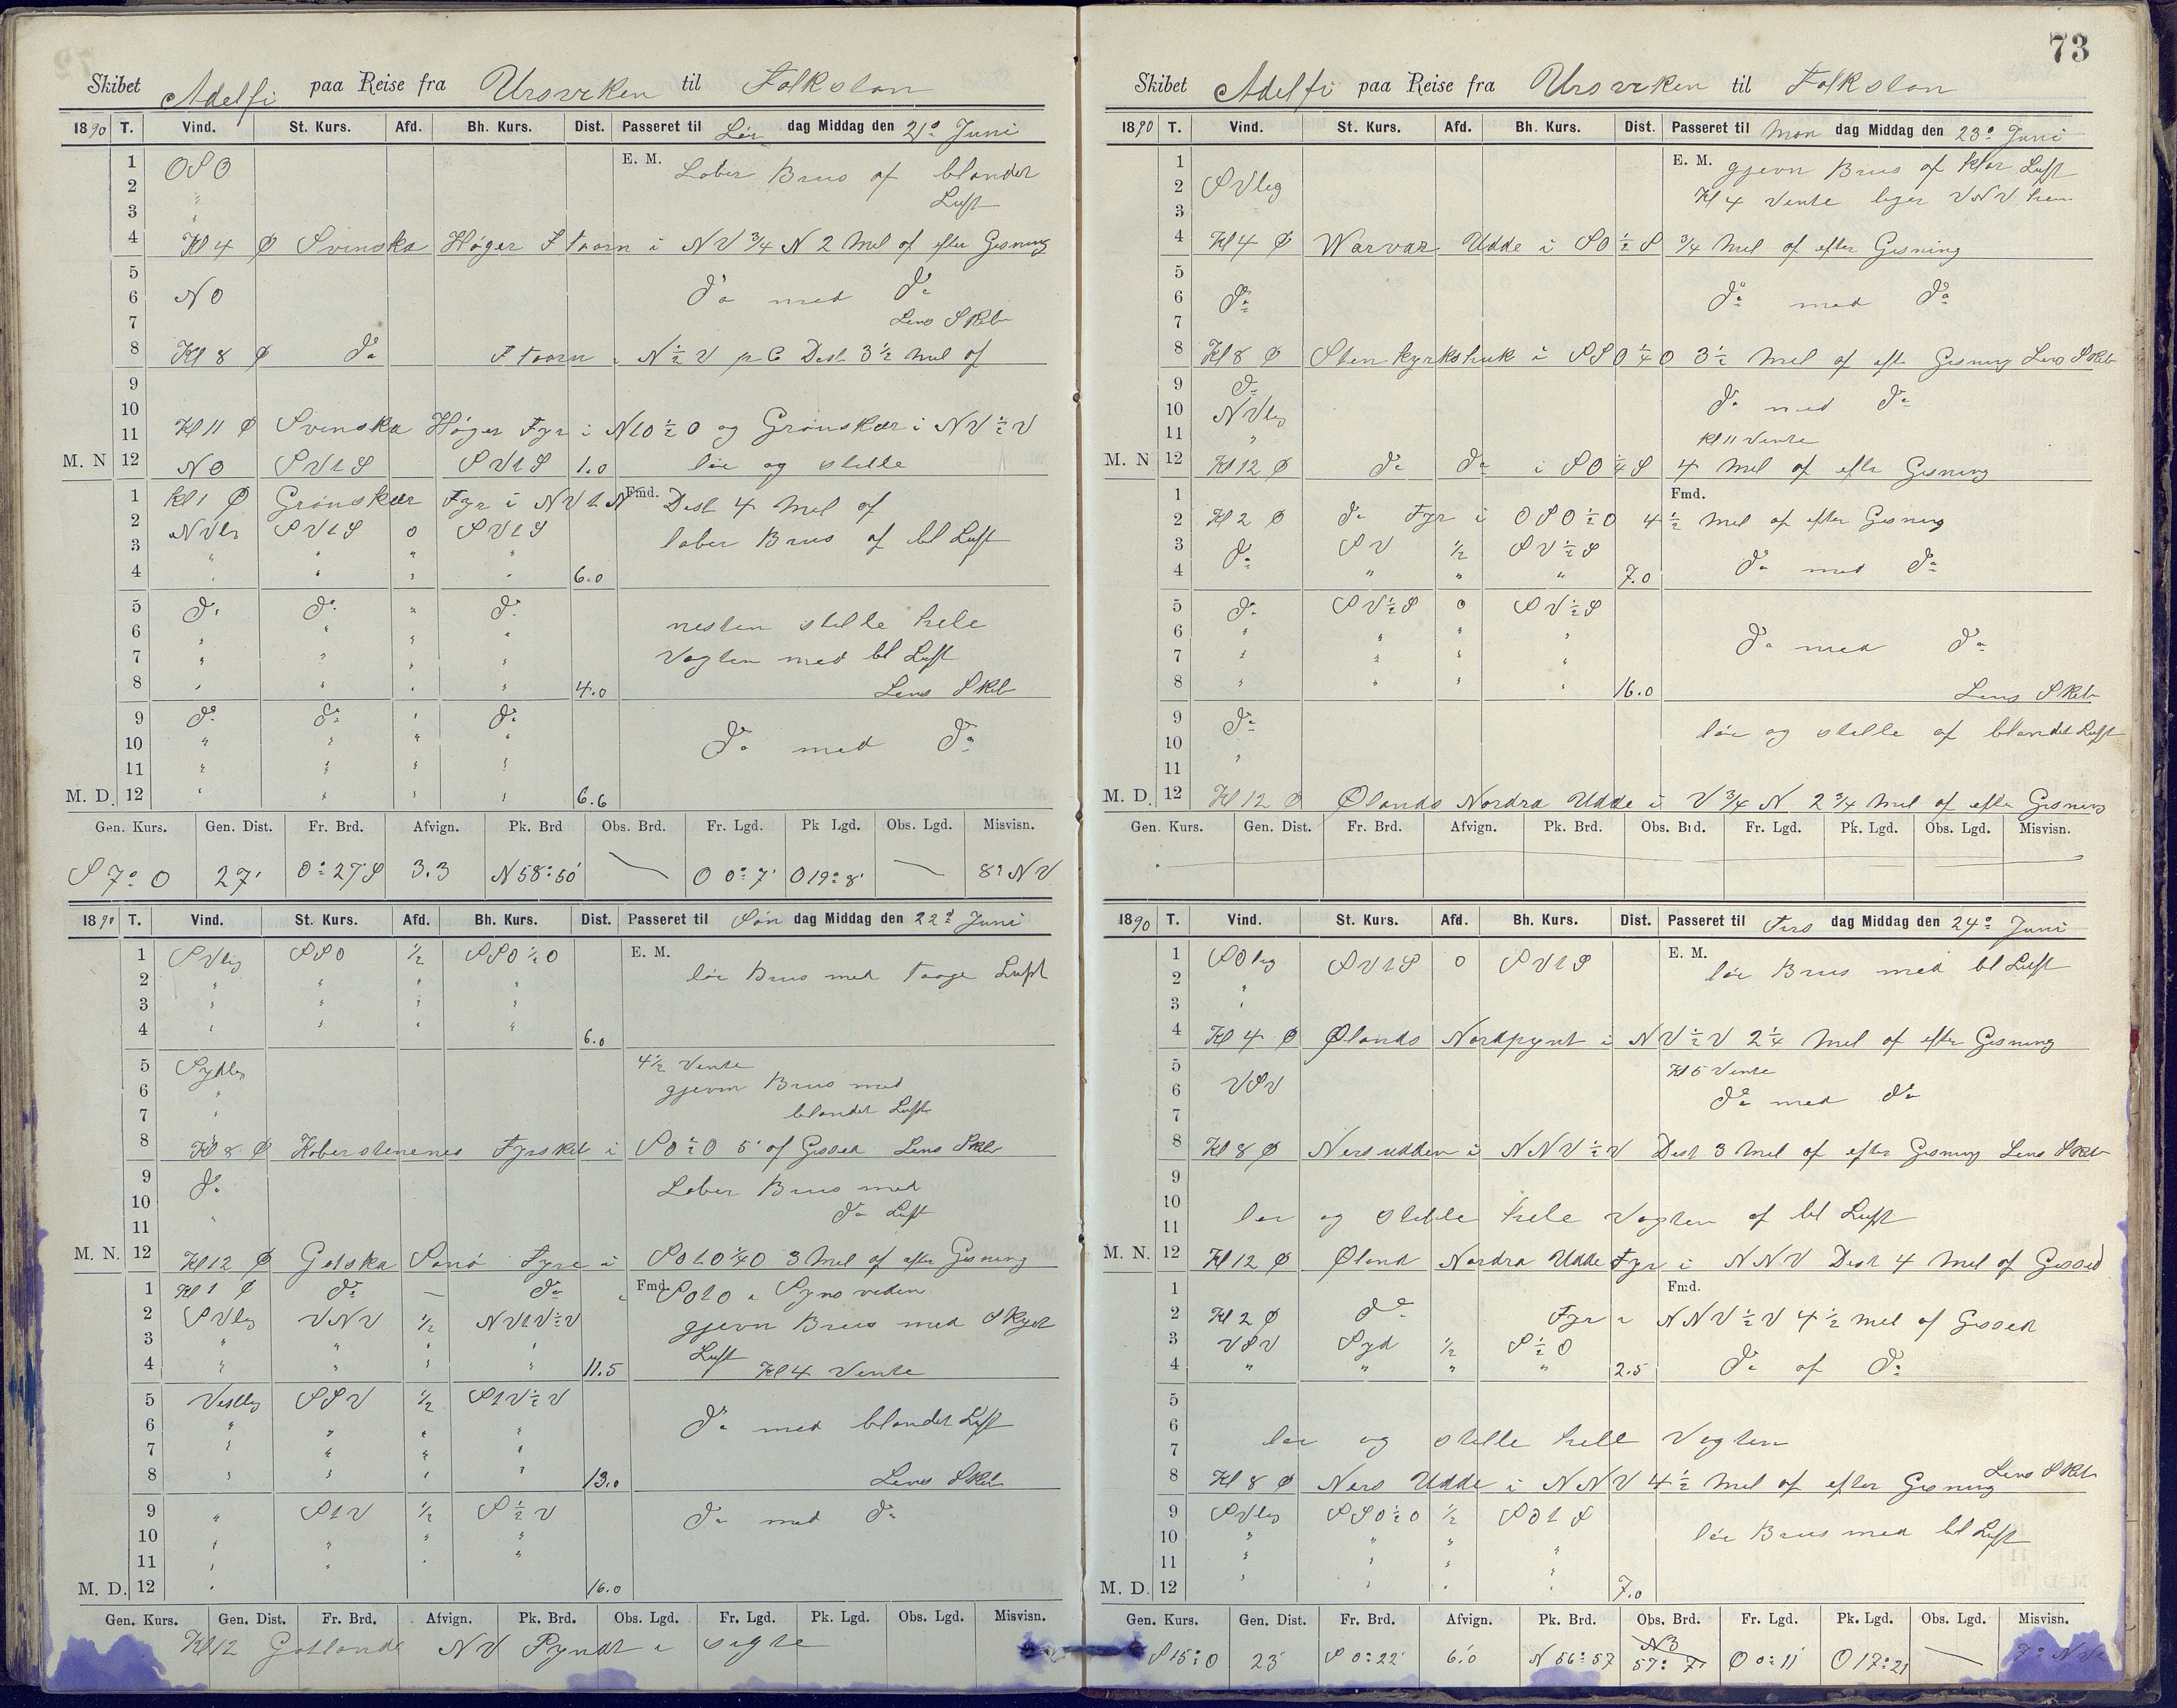 Skibet Adelfi paa Reise fra Ursviken til Folkston
1890 T. Vind. St. Kurs. Afd. Bh. Kurs. Dist. Passeret til Lör dag Middag den 21º Juni
1 OSO E. M. Laber Brus af blandet
2 " Luft
3 "
4 Kl 4 Ø Svenska Høger F taarn i NV ¾ N 2 Mil af efter Gisning
5
6 NO dº med dº
7 Lens Skib
8 Kl 8 Ø dº F taarn i N ½ V pr C Dist 3 ½ Mil af
9
10
11 Kl 11 Ø Svenska Høger Fyr i NtO ½ O og Grönskær i NV ½ V
M. N 12 NO SVtS SVtS 1.0 löi og stille
1 Kl 1 Ø Grönskær Fyr i NVtN Fmd. Dist 4 Mil af
2 NVlig SVtS 0 SVtS
3 " " " " laber Brus af bl Luft
4 " " " " 6.0
5 dº dº " dº
6 " " " " nesten stille hele
7 " " " " Vagten med bl Luft
8 " " " " 4.0 Lens Skib
9 dº dº " dº
10 " " " " dº med dº
11 " " " "
M. D. 12 " " " " 6.6
Gen. Kurs. Gen. Dist. Fr. Brd. Afvign. Pk. Brd Obs. Brd. Fr. Lgd. Pk Lgd. Obs. Lgd. Misvisn.
S 7º O 27' 0º 27' S 3.3 N 58º 50' — O 0º 7' O 19º 8' — 8º NV
1890 T. Vind. St. Kurs. Afd. Bh. Kurs. Dist. Passeret til Sön dag Middag den 22º Juni
1 SVlig SSO ½ SSO ½ O E. M.
2 " " " " löi Brus med Taage Luft
3 " " " "
4 " " " " 6.0
5 Sydlig 4 ½ Vente
6 " gjevn Brus med
7 " blandet Luft
8 Kl 8 Ø Koberstenenes Fyrskib i SO ½ O 5' af Gisset Lens Skib
9 dº
10 Laber Brus med
11 " dº Luft
M. N. 12 Kl 12 Ø Gotska Sanö Fyre i SOtO ¼ O 3 Mil af efter Gisning
1 Kl 1 Ø dº — dº i Fmd. SOtO
2 SVlig VNV ½ NVtV ½ V gjevn Brus med Skyet
3 " " " " Luft
4 " " " " 11.5 Kl 4 Vente
5 Vestlig SSV ½ StV ½ V
6 " " " " dº med blandet Luft
7 " " " "
8 " " " " 13.0 Lens Skib
9 " StV ½ S ½ V dº med dº
10 " " " "
11 " " " "
M. D. 12 " 16.0
Gen. Kurs. Gen. Dist. Fr. Brd. Afvign. Pk. Brd. Obs. Lgd. Fr. Lgd. Pk. Lgd. Obs. Lgd. Misvisn.
Kl 12 Gotlands NV Pyndt i sigte
73
Skibet Adelfi paa Reise fra Ursviken til Folkston
1890 T. Vind. St. Kurs. Afd. Bh. Kurs. Dist. Passeret til Man dag Middag den 23º Juni
1 E. M. gjevn Brus af klar Luft
2 SVlig Kl 4 Vente VNV hen
3
4 Kl 4 Ø Warvar Udde i SO ½ S ¾ Mil af efter Gisning
5
6 dº dº med dº
7
8 Kl 8 Ø Stenkyrkshuk i SSO ¼ O 3 ½ Mil af eftr Gisning Lens Skib
9 dº
10 NVlig dº med dº
11 " Kl 11 Vente
M. N 12 Kl 12 Ø dº dº i SO ¼ S 4 Mil af eftr Gisning
1 Fmd.
2 Kl 2 Ø dº Fyr i OSO ½ O 4 ½ Mil af efter Gisning
3 dº SV ½ SV ½ S
4 " " " 7.0 dº med dº
5 dº SV ½ S 0 SV ½ S
6 " " " "
7 " " " " dº med dº
8 " " " " 16.0 Lens Skib
9 dº löi og stille af blandet Luft
10
11 "
M. D. 12 Kl 12 Ø Ølands Nordra Udde i V ¾ N 2 ¾ Mil af efter Gisning
Gen. Kurs. Gen. Dist. Fr. Brd. Afvign. Pk. Brd. Obs. Brd. Fr. Lgd. Pk. Lgd. Obs. Lgd. Misvisn.
1890 T. Vind. St. Kurs. Afd. Bh. Kurs. Dist. Passeret til Tirs dag Middag den 24º Juni
1 SOlig SVtS 0 SVtS E. M.
2 " löi Brus med bl Luft
3 "
4 Kl 4 Ø Ølands Nordpynt i NV ½ V 2 ¼ Mil af efter Gisning
5 Kl 5 Vente
6 VSV dº med dº
7
8 Kl 8 Ø Nersudden i NNV ½ V Dist 3 Mil af efter Gisning Lens Skib
9
10
11 löi og stille hele Vagten af bl Luft
M. N. 12 Kl 12 Ø Øland Nordra Udde Fyr i NNV Dist 4 Mil af Gissed
1 Fmd.
2 Kl 2 Ø dº Fyr i NNV ½ V 4 ½ Mil af Gissed
3 VSV Syd ½ S ½ O
4 " " " " 2.5 dº af dº
5
6
7 löi og stille hele Vagten
8 Kl 8 Ø Ners Udde i NNV 4 ½ Mil af efter Gisning Lens Skib
9 SVlig SSO ½ O ½ SOtS
10 " " " löi Brus med bl Luft
11 " " " "
M. D. 12 " " " " 7.0
Gen. Kurs. Gen. Dist. Fr. Brd. Afvign. Pk. Brd. Obs. Brd. Fr. Lgd. Pk. Lgd. Obs. Lgd. Misvisn.
S 15º O 23' S 0º 22' 6.0 N 56º 57 57º 7' O 0º 11' O 17º 21 — 7º NV